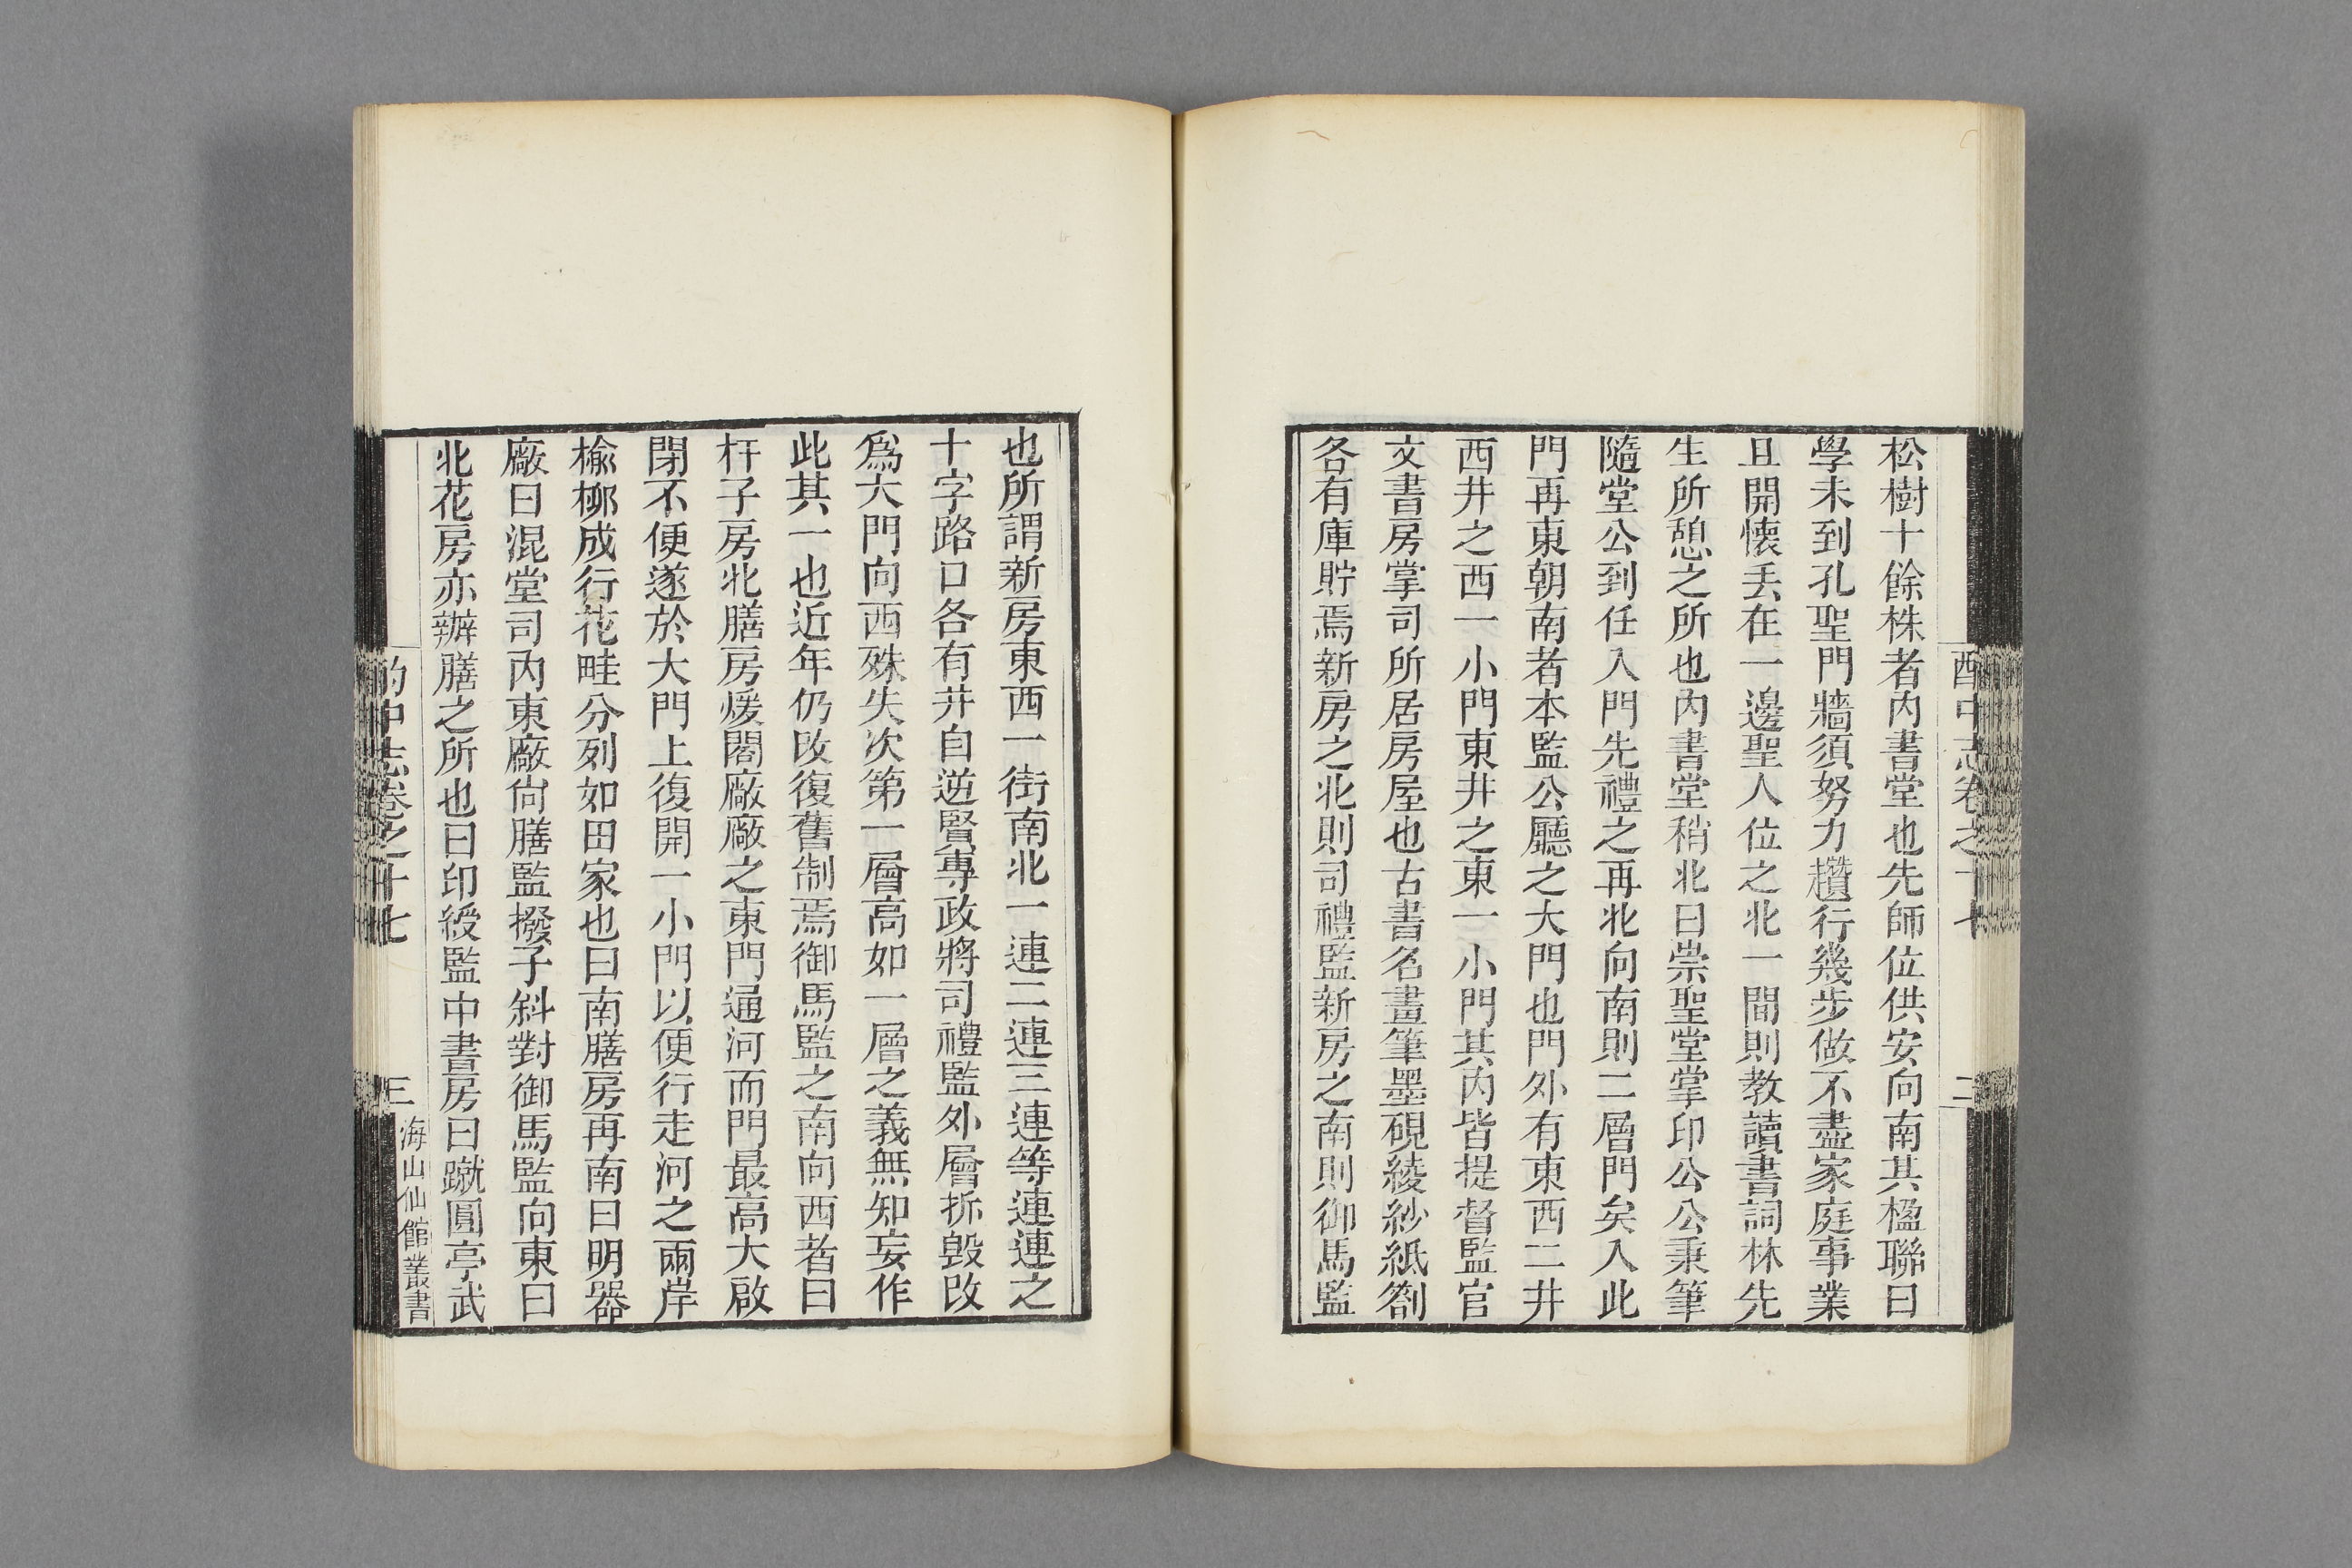 松樹十餘株者內書堂也先師位供安向南其楹聯曰
學未到孔聖門牆須努力趲行幾步做不盡家庭事業
且開懷丢在一邊聖人位之北一間則教讀書詞林先
生所憩之所也內書堂稍北曰崇聖堂掌印公公秉筆
隨堂公到任入門先禮之再北向南則二層門矣入此
門再東朝南者本監公廳之大門也門外有東西二井
西井之西一小門東井之東一小門其內皆提督監官
文書房掌司所居房屋也古書名畫筆墨硯綾紗紙劄
各有庫貯焉新房之北則司禮監新房之南則御馬監
酌中志卷之十七
二
也所謂新房東西一街南北一連二連三連等連連之
十字路口各有井自逆賢專政將司禮監外層拆毀改
爲大門向西殊失次第一層高如一層之義無知妄作
此其一也近年仍改復舊制焉御馬監之南向西者曰
杆子房北膳房煖閣廠廠之東門通河而門最高大啟
閉不便遂於大門上復開一小門以便行走河之兩岸
楡柳成行花畦分列如田家也曰南膳房再南曰明器
廠曰混堂司內東廠尙膳監撥子斜對御馬監向東曰
北花房亦辦膳之所也曰印綬監中書房曰蹴圓亭武
酌中志卷之十七
三
海山仙館叢書